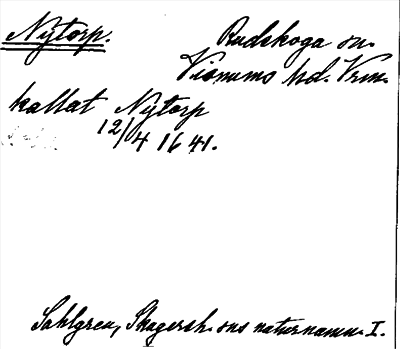 Nytorp.
Rudskoga sn.
Visnums hd. Vrm.
kallat Nytorp
12/4 1641.
Sahlgren, Skagersh. sns naturnamn. I.